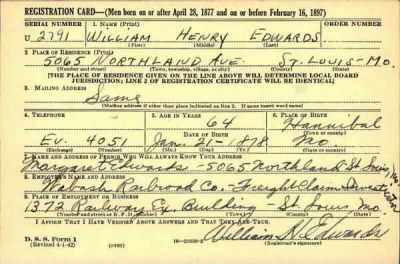 REGISTRATION CARD—(Men born on or after April 28, 1877 and on or before February 16, 1897)
SERIAL NUMBER 1. NAME (Print) ORDER NUMBER
U 2791 WILLIAM HENRY EDWARDS
(First) (Middle) (Last)
2. PLACE OF RESIDENCE (Print)
5065 NORTHLAND AVE ST. LOUIS-MO.
(Number and street) (Town, township, village, or city) (County) (State)
[THE PLACE OF RESIDENCE GIVEN ON THE LINE ABOVE WILL DETERMINE LOCAL BOARD
JURISDICTION; LINE 2 OF REGISTRATION CERTIFICATE WILL BE IDENTICAL]
3. MAILING ADDRESS
Same
[Mailing address if other than place indicated on line 2. If same insert word same]
4. TELEPHONE 5. AGE IN YEARS 6. PLACE OF BIRTH
64 Hannibal
DATE OF BIRTH
Ev. 4051 Jan. 21-1878 Mo.
(Exchange) (Number) (Mo.) (Day) (Yr.) (State or country)
7. NAME AND ADDRESS OF PERSON WHO WILL ALWAYS KNOW YOUR ADDRESS
Margaret Edwards - 5065 Northland - St. Louis, Mo.
8. EMPLOYER'S NAME AND ADDRESS
Wabash Railroad Co. - Freight Claim Investigator
9. PLACE OF EMPLOYMENT OR BUSINESS
1372 Railway Ex. Building - St. Louis, Mo.
(Number and street or R. F. D. number) (Town) (County) (State)
I AFFIRM THAT I HAVE VERIFIED ABOVE ANSWERS AND THAT THEY ARE TRUE.
D. S. S. Form 1
(Revised 4-1-42) (over) 16—21630-2 William H. Edwards
(Registrant's signature)